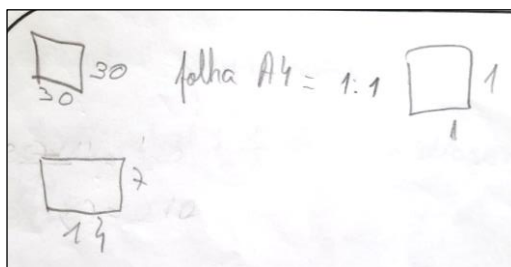 30
30
folha A4 = 1:1
1
1
7
14